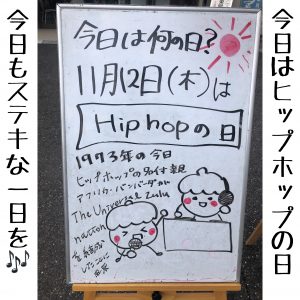 今日はヒップホップの日
今日は何の日?
11月12日(木)は
Hip hopの日
1973年の今日
ヒップホップの名付け親
アフリカ・バンバータが
The Universal Zulu
nationを
結成
したことに
由来
今日もステキな一日を🎶